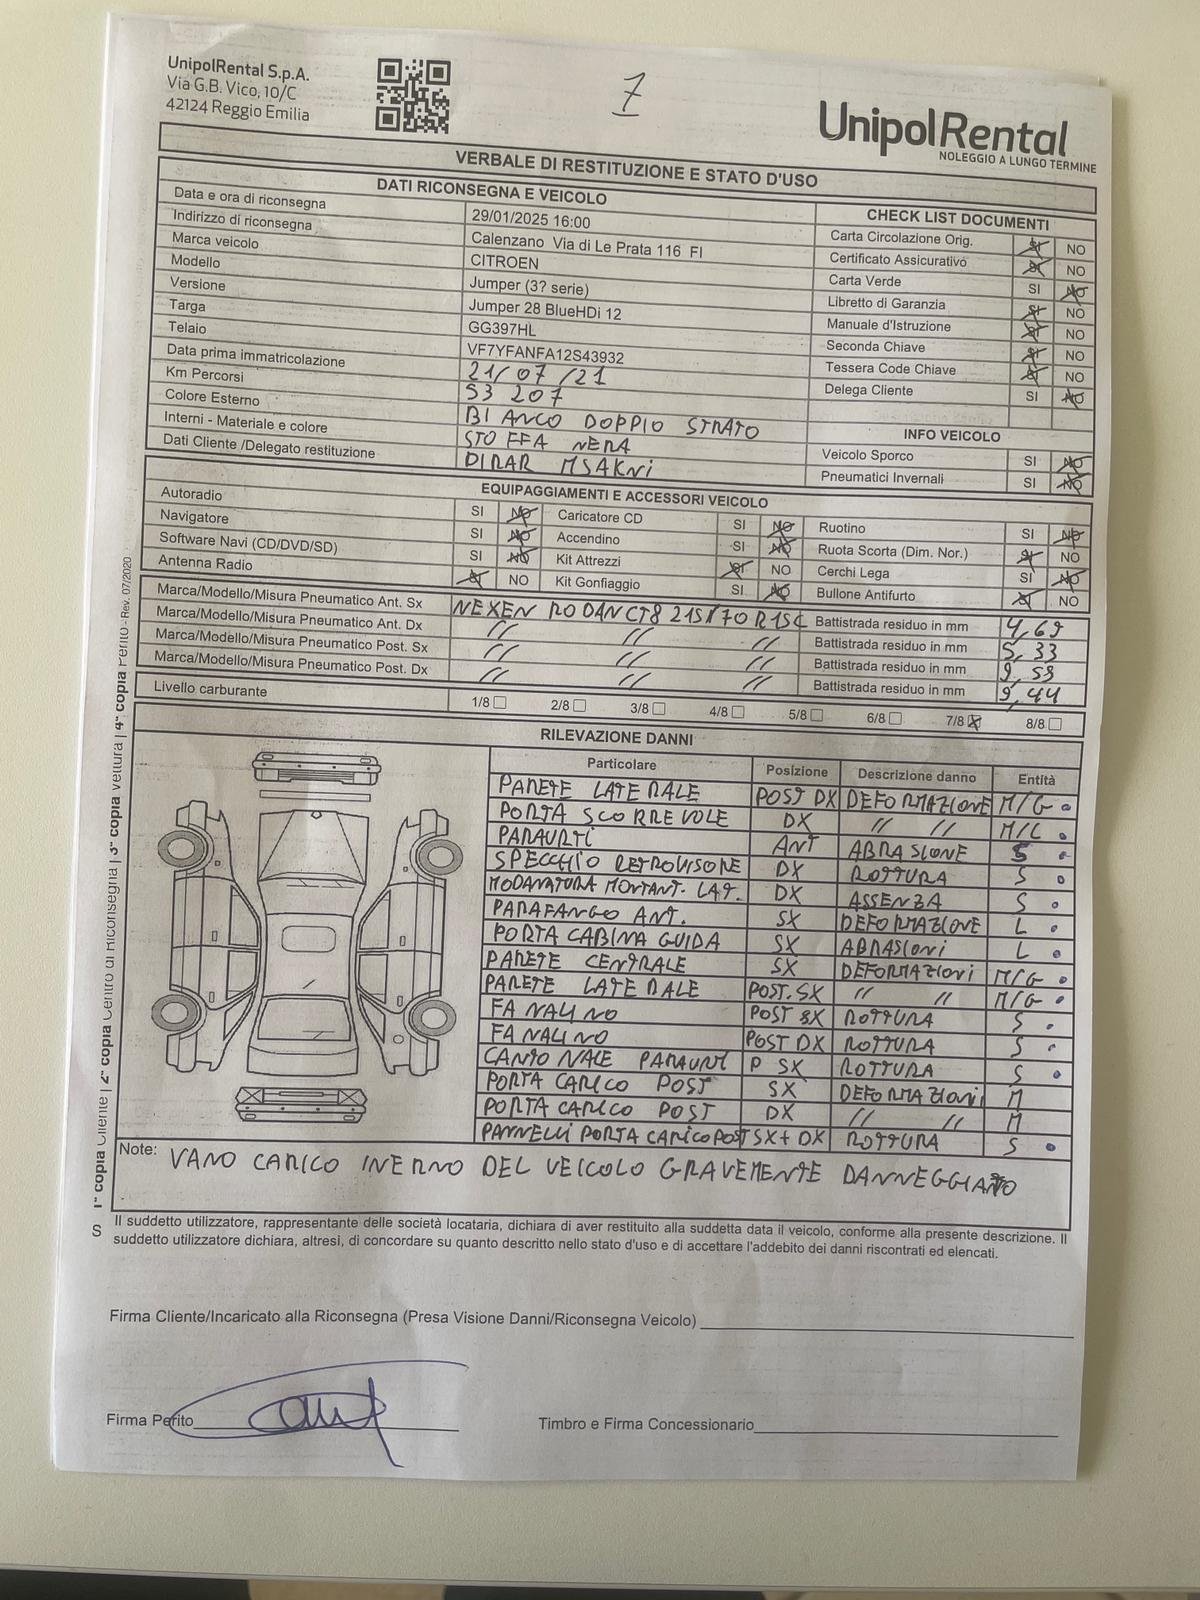 UnipolRental S.p.A.
Via G.B. Vico, 10/C
42124 Reggio Emilia
7
UnipolRental
NOLEGGIO A LUNGO TERMINE
VERBALE DI RESTITUZIONE E STATO D'USO
DATI RICONSEGNA E VEICOLO
Data e ora di riconsegna 29/01/2025 16:00
Indirizzo di riconsegna Calenzano Via di Le Prata 116 FI
Marca veicolo CITROEN
Modello Jumper (3? serie)
Versione Jumper 28 BlueHDi 12
Targa GG397HL
Telaio VF7YFANFA12S43932
Data prima immatricolazione 21/07/21
Km Percorsi 53 207
Colore Esterno BIANCO DOPPIO STRATO
Interni - Materiale e colore STOFFA NERA
Dati Cliente /Delegato restituzione DIRAR MSAKNi
CHECK LIST DOCUMENTI
Carta Circolazione Orig. SI NO
Certificato Assicurativo SI NO
Carta Verde SI NO
Libretto di Garanzia SI NO
Manuale d'Istruzione SI NO
Seconda Chiave SI NO
Tessera Code Chiave SI NO
Delega Cliente SI NO
INFO VEICOLO
Veicolo Sporco SI NO
Pneumatici Invernali SI NO
EQUIPAGGIAMENTI E ACCESSORI VEICOLO
Autoradio SI NO Caricatore CD SI NO Ruotino SI NO
Navigatore SI NO Accendino SI NO Ruota Scorta (Dim. Nor.) SI NO
Software Navi (CD/DVD/SD) SI NO Kit Attrezzi SI NO Cerchi Lega SI NO
Antenna Radio SI NO Kit Gonfiaggio SI NO Bullone Antifurto SI NO
Marca/Modello/Misura Pneumatico Ant. Sx NEXEN RODAN CT8 215/70 R15C Battistrada residuo in mm 4,69
Marca/Modello/Misura Pneumatico Ant. Dx // // // Battistrada residuo in mm 5,33
Marca/Modello/Misura Pneumatico Post. Sx // // // Battistrada residuo in mm 9,53
Marca/Modello/Misura Pneumatico Post. Dx // // // Battistrada residuo in mm 9,44
Livello carburante 1/8 2/8 3/8 4/8 5/8 6/8 7/8 8/8
RILEVAZIONE DANNI
Particolare Posizione Descrizione danno Entità
PARETE LATERALE POST DX DEFORMAZIONE M/G
PORTA SCORREVOLE DX // // M/L
PARAURTI ANT ABRASIONE S
SPECCHIO RETROVISORE DX ROTTURA S
MODANATURA MONTANT. LAT. DX ASSENZA S
PARAFANGO ANT. SX DEFORMAZIONE L
PORTA CABINA GUIDA SX ABRASIONi L
PARETE CENTRALE SX DEFORMAZIONi M/G
PARETE LATERALE POST. SX // // M/G
FANALINO POST SX ROTTURA S
FANALINO POST DX ROTTURA S
CANTONALE PARAURT P SX ROTTURA S
PORTA CARICO POST SX DEFORMAZIONi M
PORTA CARICO POST DX // // M
PANNELLI PORTA CARICO POST SX+DX ROTTURA S
Note: VANO CARICO INERNO DEL VEICOLO GRAVEMENTE DANNEGGIATO
S
Il suddetto utilizzatore, rappresentante delle società locataria, dichiara di aver restituito alla suddetta data il veicolo, conforme alla presente descrizione. Il
suddetto utilizzatore dichiara, altresì, di concordare su quanto descritto nello stato d'uso e di accettare l'addebito dei danni riscontrati ed elencati.
Firma Cliente/Incaricato alla Riconsegna (Presa Visione Danni/Riconsegna Veicolo)
Firma Perito
Timbro e Firma Concessionario
1° copia Cliente | 2° copia Centro di Riconsegna | 3° copia vettura | 4° copia Perito - Rev. 07/2020